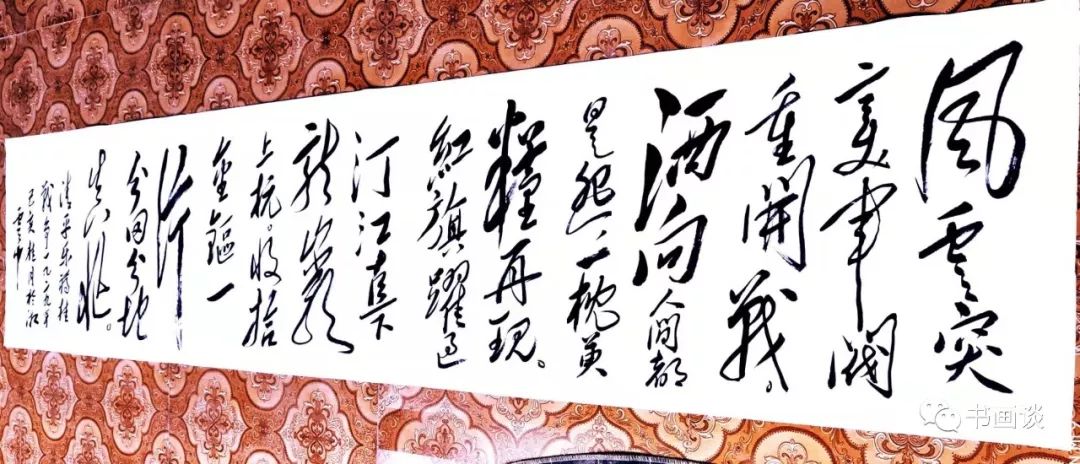 风云突
变军阀
重開戰。
洒向人间都
是怨一枕黄
糧再現。
紅旗躍过
汀江直下
龍巖
上杭。收拾
金鏂一
片
分田分地
真忙。
清平乐蒋桂
战争一九二九年
己亥桂月於
书画谈